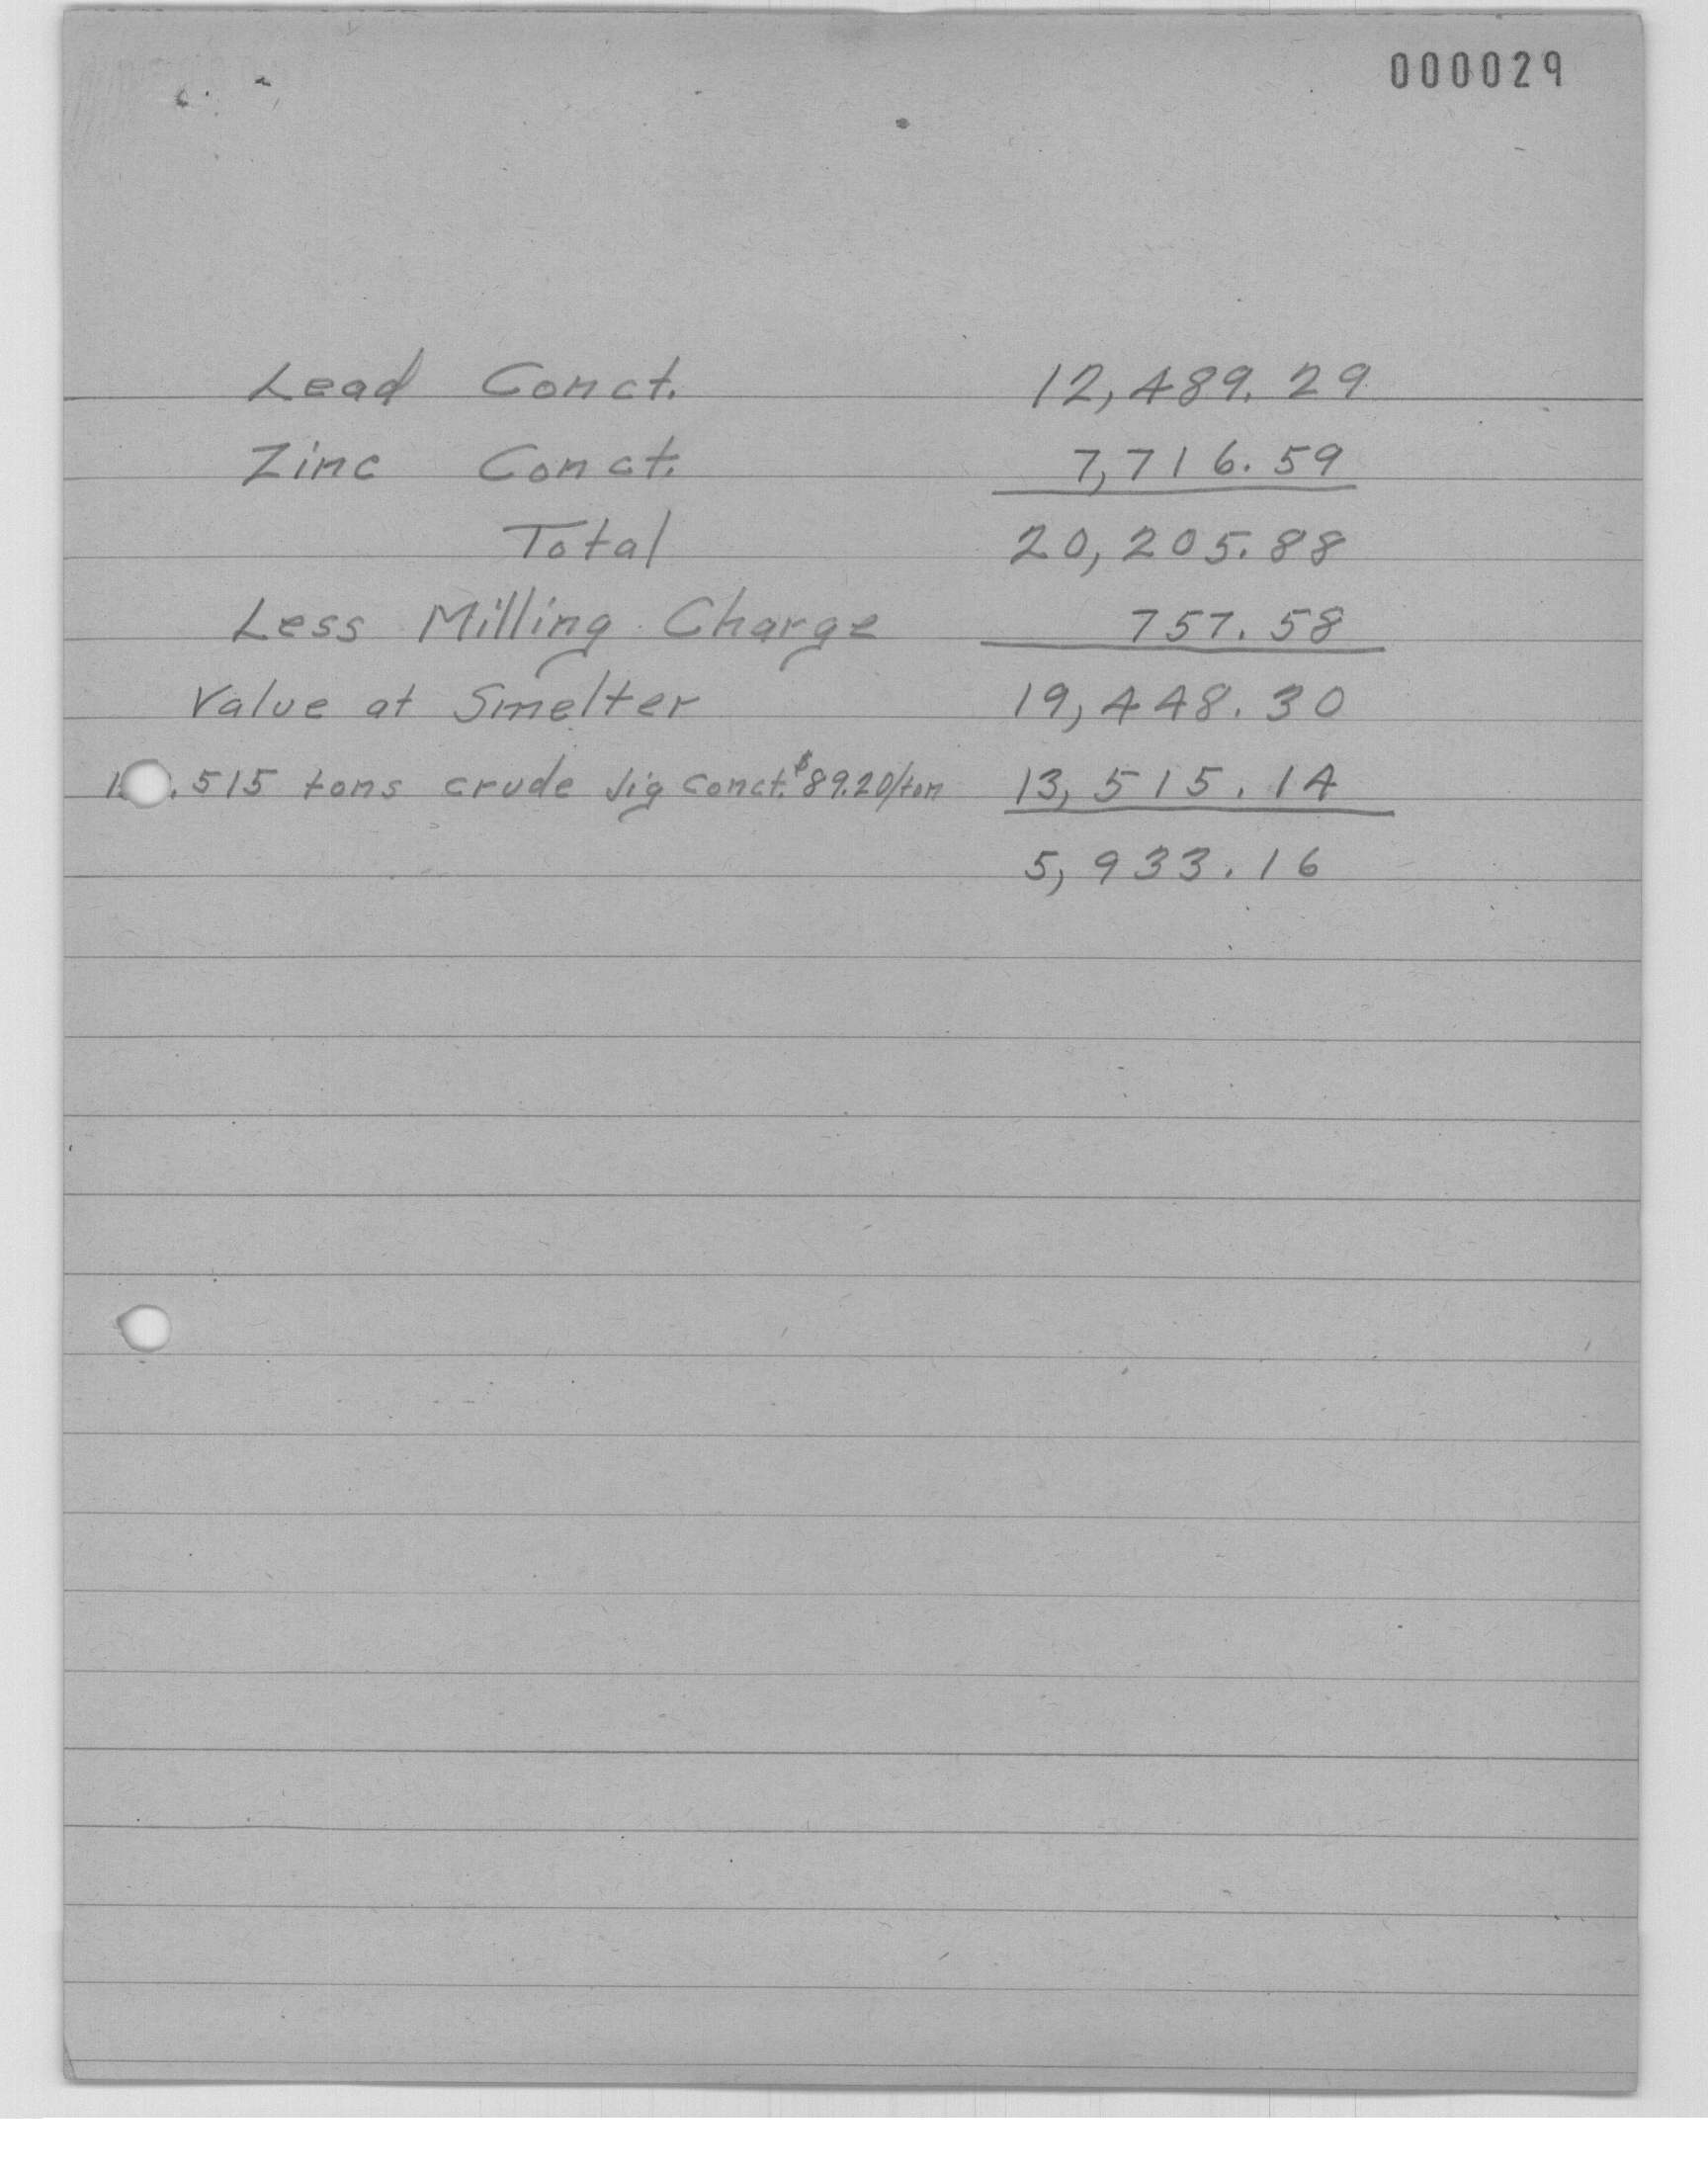 000029
Lead Conct. 12,489.29
Zinc Conct. 7,716.59
Total 20,205.88
Less Milling Charge 757.58
Value at Smelter 19,448.30
.515 tons crude Jig Conct. $89.20/ton 13,515.14
5,933.16